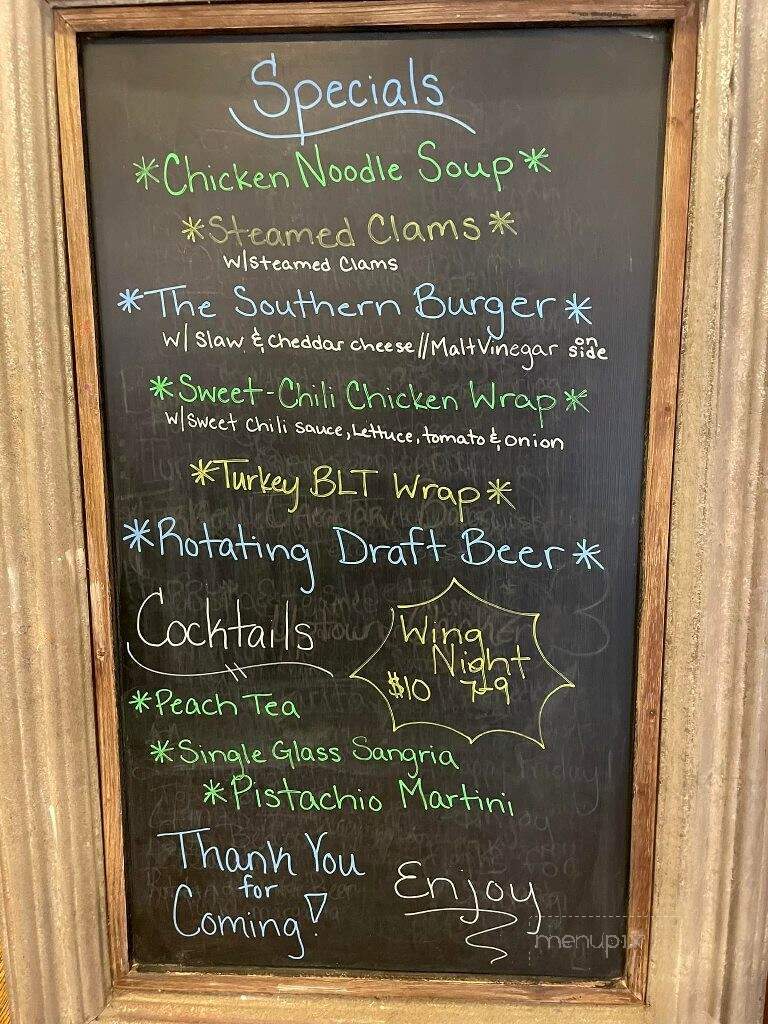 Specials
*Chicken Noodle Soup*
*Steamed Clams*
w/steamed Clams
*The Southern Burger*
w/ Slaw & Cheddar cheese//Malt Vinegar on side
*Sweet-Chili Chicken Wrap*
w/sweet chili sauce, Lettuce, tomato & onion
*Turkey BLT Wrap*
*Rotating Draft Beer*
Cocktails
Wing
Night
$10 7-9
*Peach Tea
*Single Glass Sangria
*Pistachio Martini
Thank You
for
Coming!
Enjoy
menupix